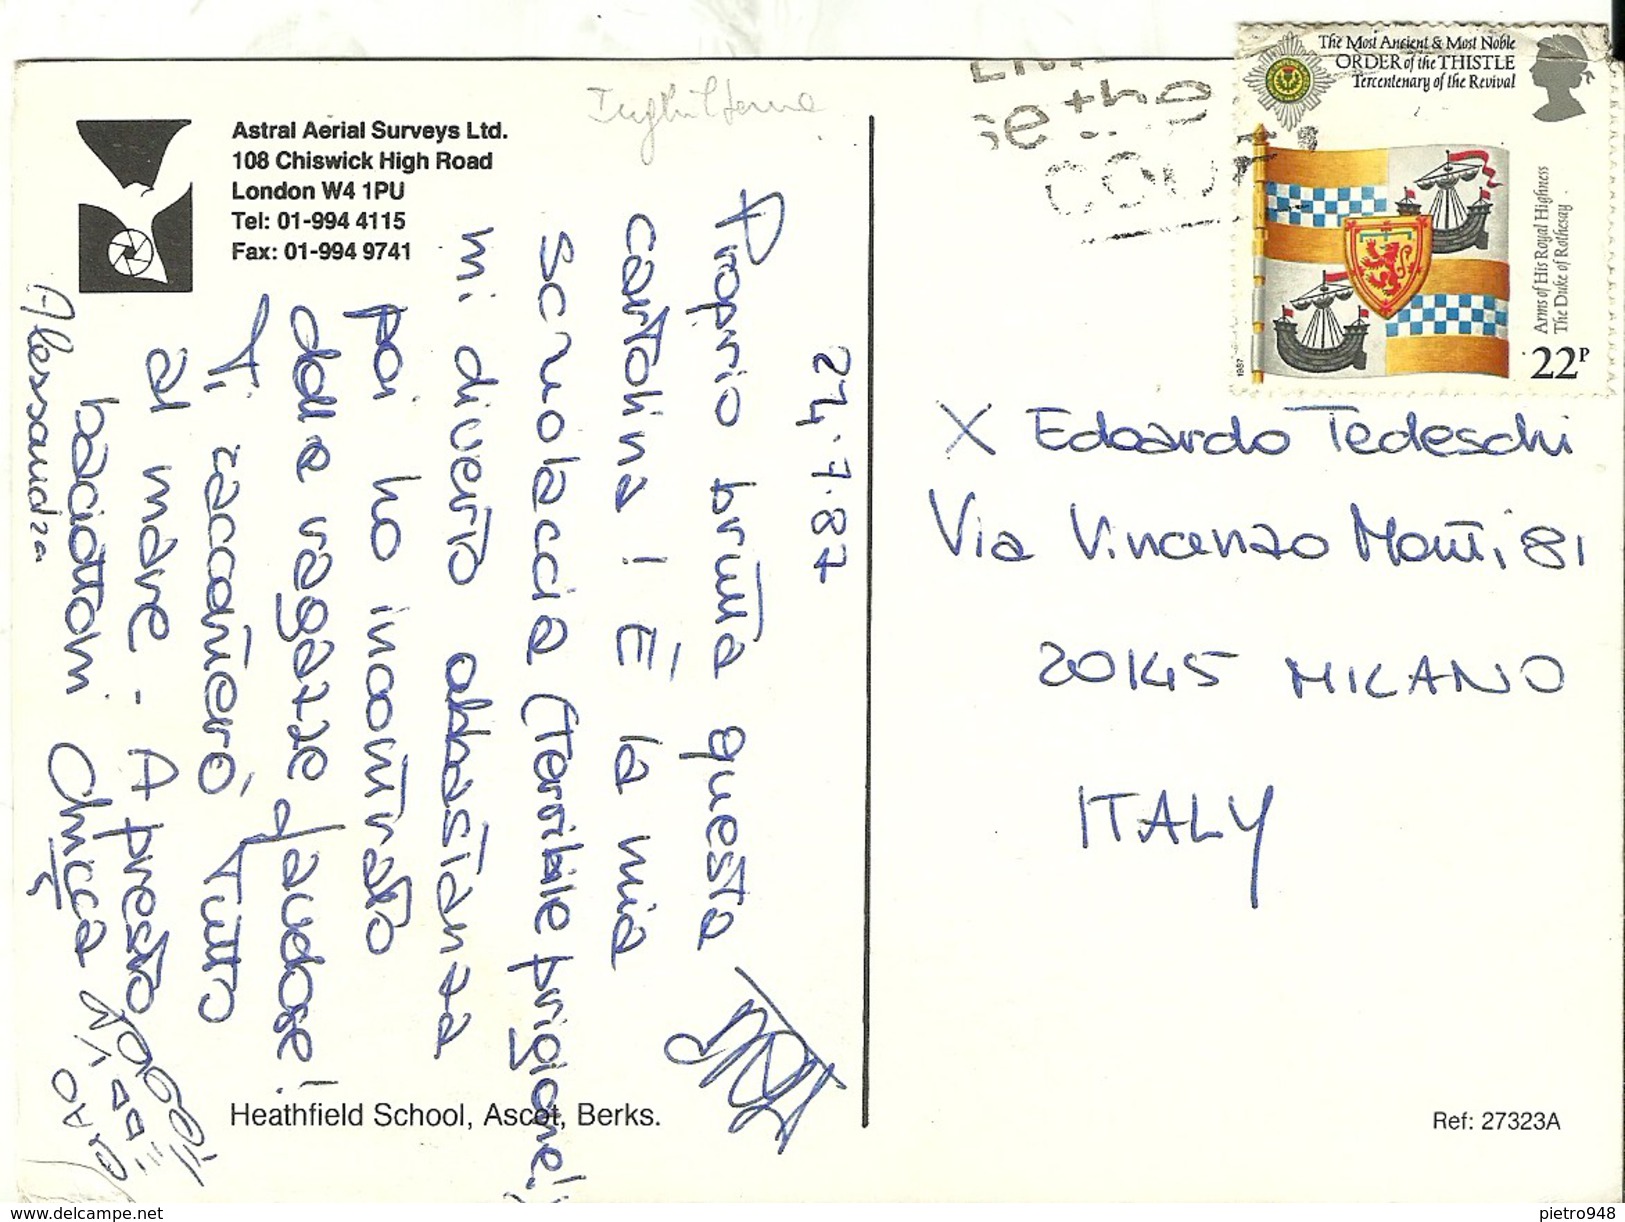 Inghilterra
Astral Aerial Surveys Ltd.
108 Chiswick High Road
London W4 1PU
Tel: 01-994 4115
Fax: 01-994 9741
24.7.87
Proprio brutta questa
cartolina! È la mia
scuolaccia (terribile prigione!)
mi diverto abbastanza
poi ho incontrato
delle ragazze
Ti racconterò tutto
al mare - A presto
baciottoni Chicca
Alessandra
CIAO
Heathfield School, Ascot, Berks.
se the
The Most Ancient & Most Noble
ORDER of the THISTLE
Tercentenary of the Revival
Arms of His Royal Highness
The Duke of Rothesay
1987
22P
X Edoardo Tedeschi
Via Vincenzo Monti 81
20145 MILANO
ITALY
Ref: 27323A
www.delcampe.net
pietro948